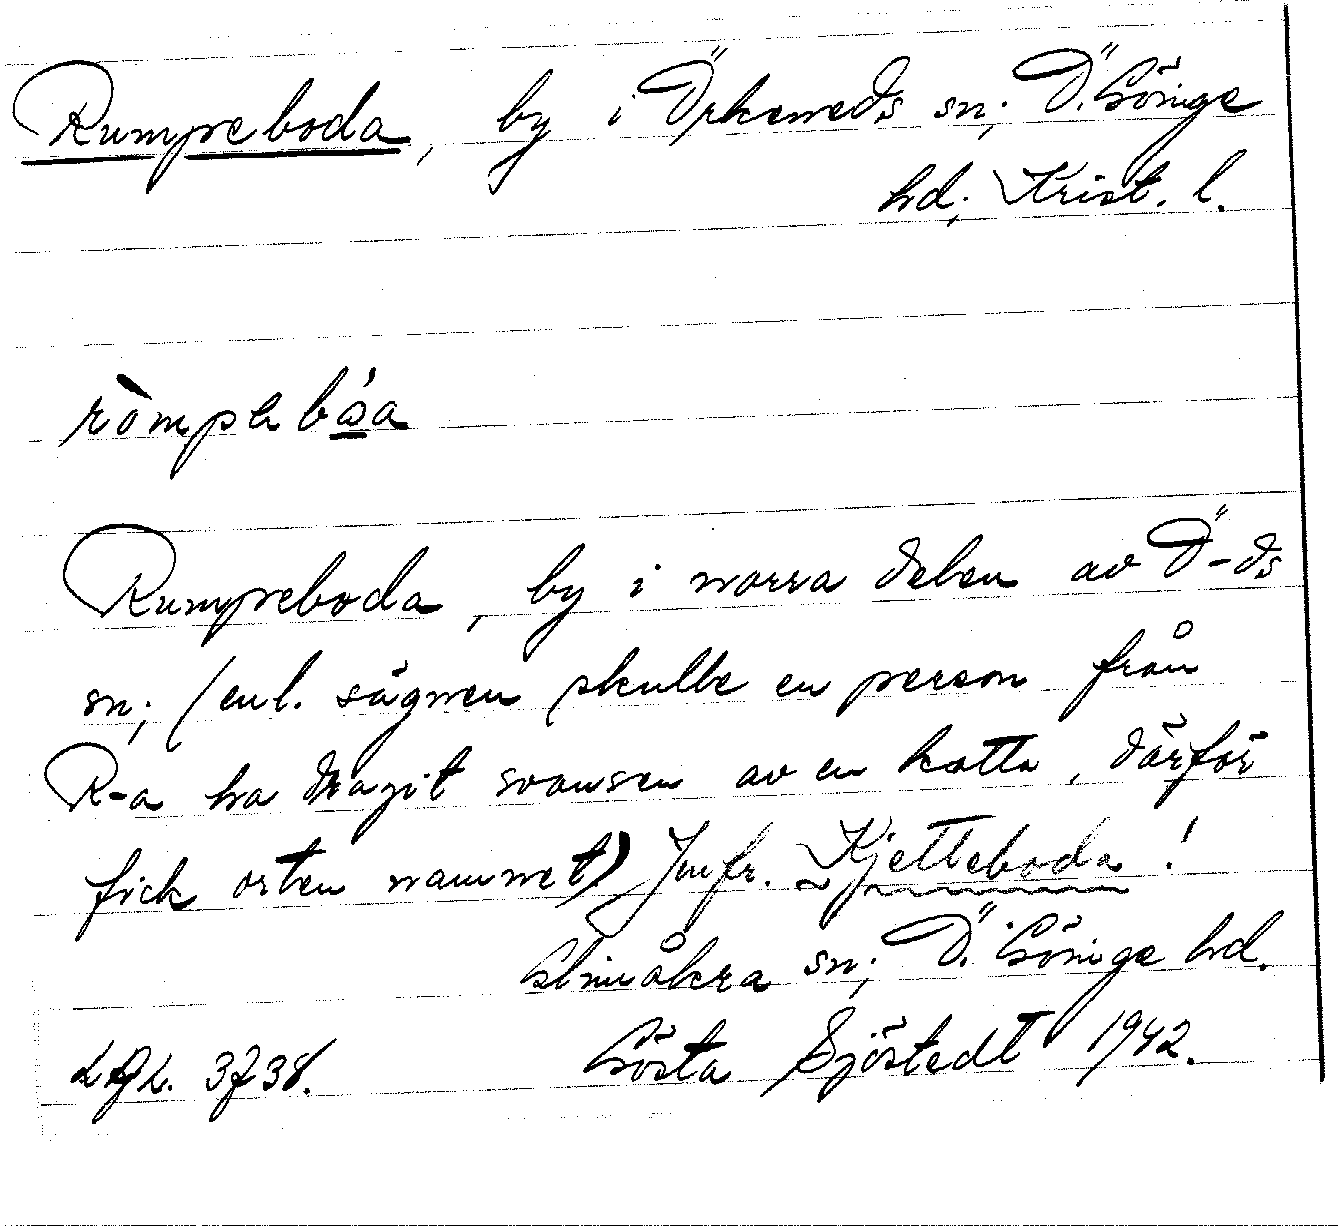 Rumpeboda, by i Örkeneds sn; Ö. Göinge
hd; Krist. l.
ròmpəbósa
Rumpeboda, by i norra delen av Ö-ds
sn; (enl. sägnen skulle en person från
R-a ha dragit svansen av en katta, därför
fick orten namnet) Jmfr. Kjetteboda!
Glimåkra sn; Ö. Göinge hd.
3738. Gösta Sjöstedt 1942.